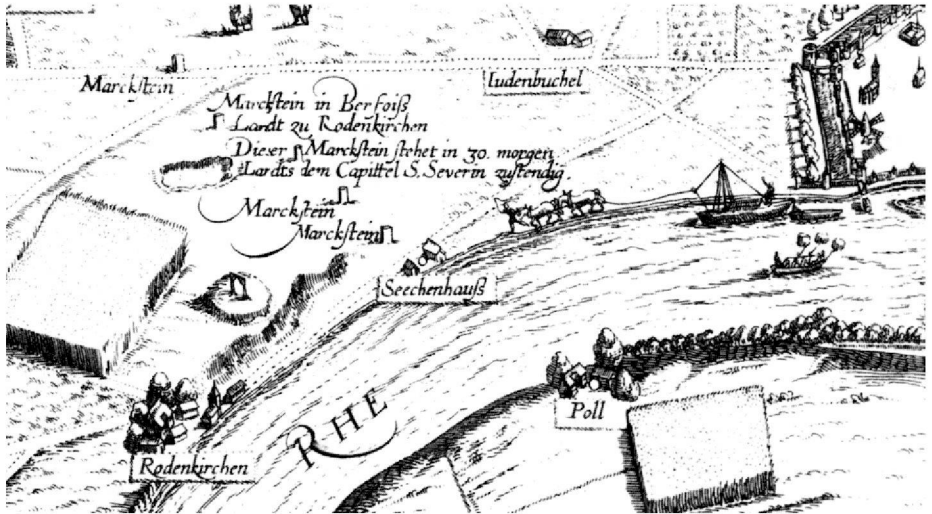 Marckstein
Iudenbuchel
Marckstein in Berfoiß
Landt zu Rodenkirchen
Dieser Marckstein stehet in 30. morgen
Landts dem Capittel S. Severin zustendig.
Marckstein
Marckstein
Seechenhauß
RHE
Poll
Rodenkirchen